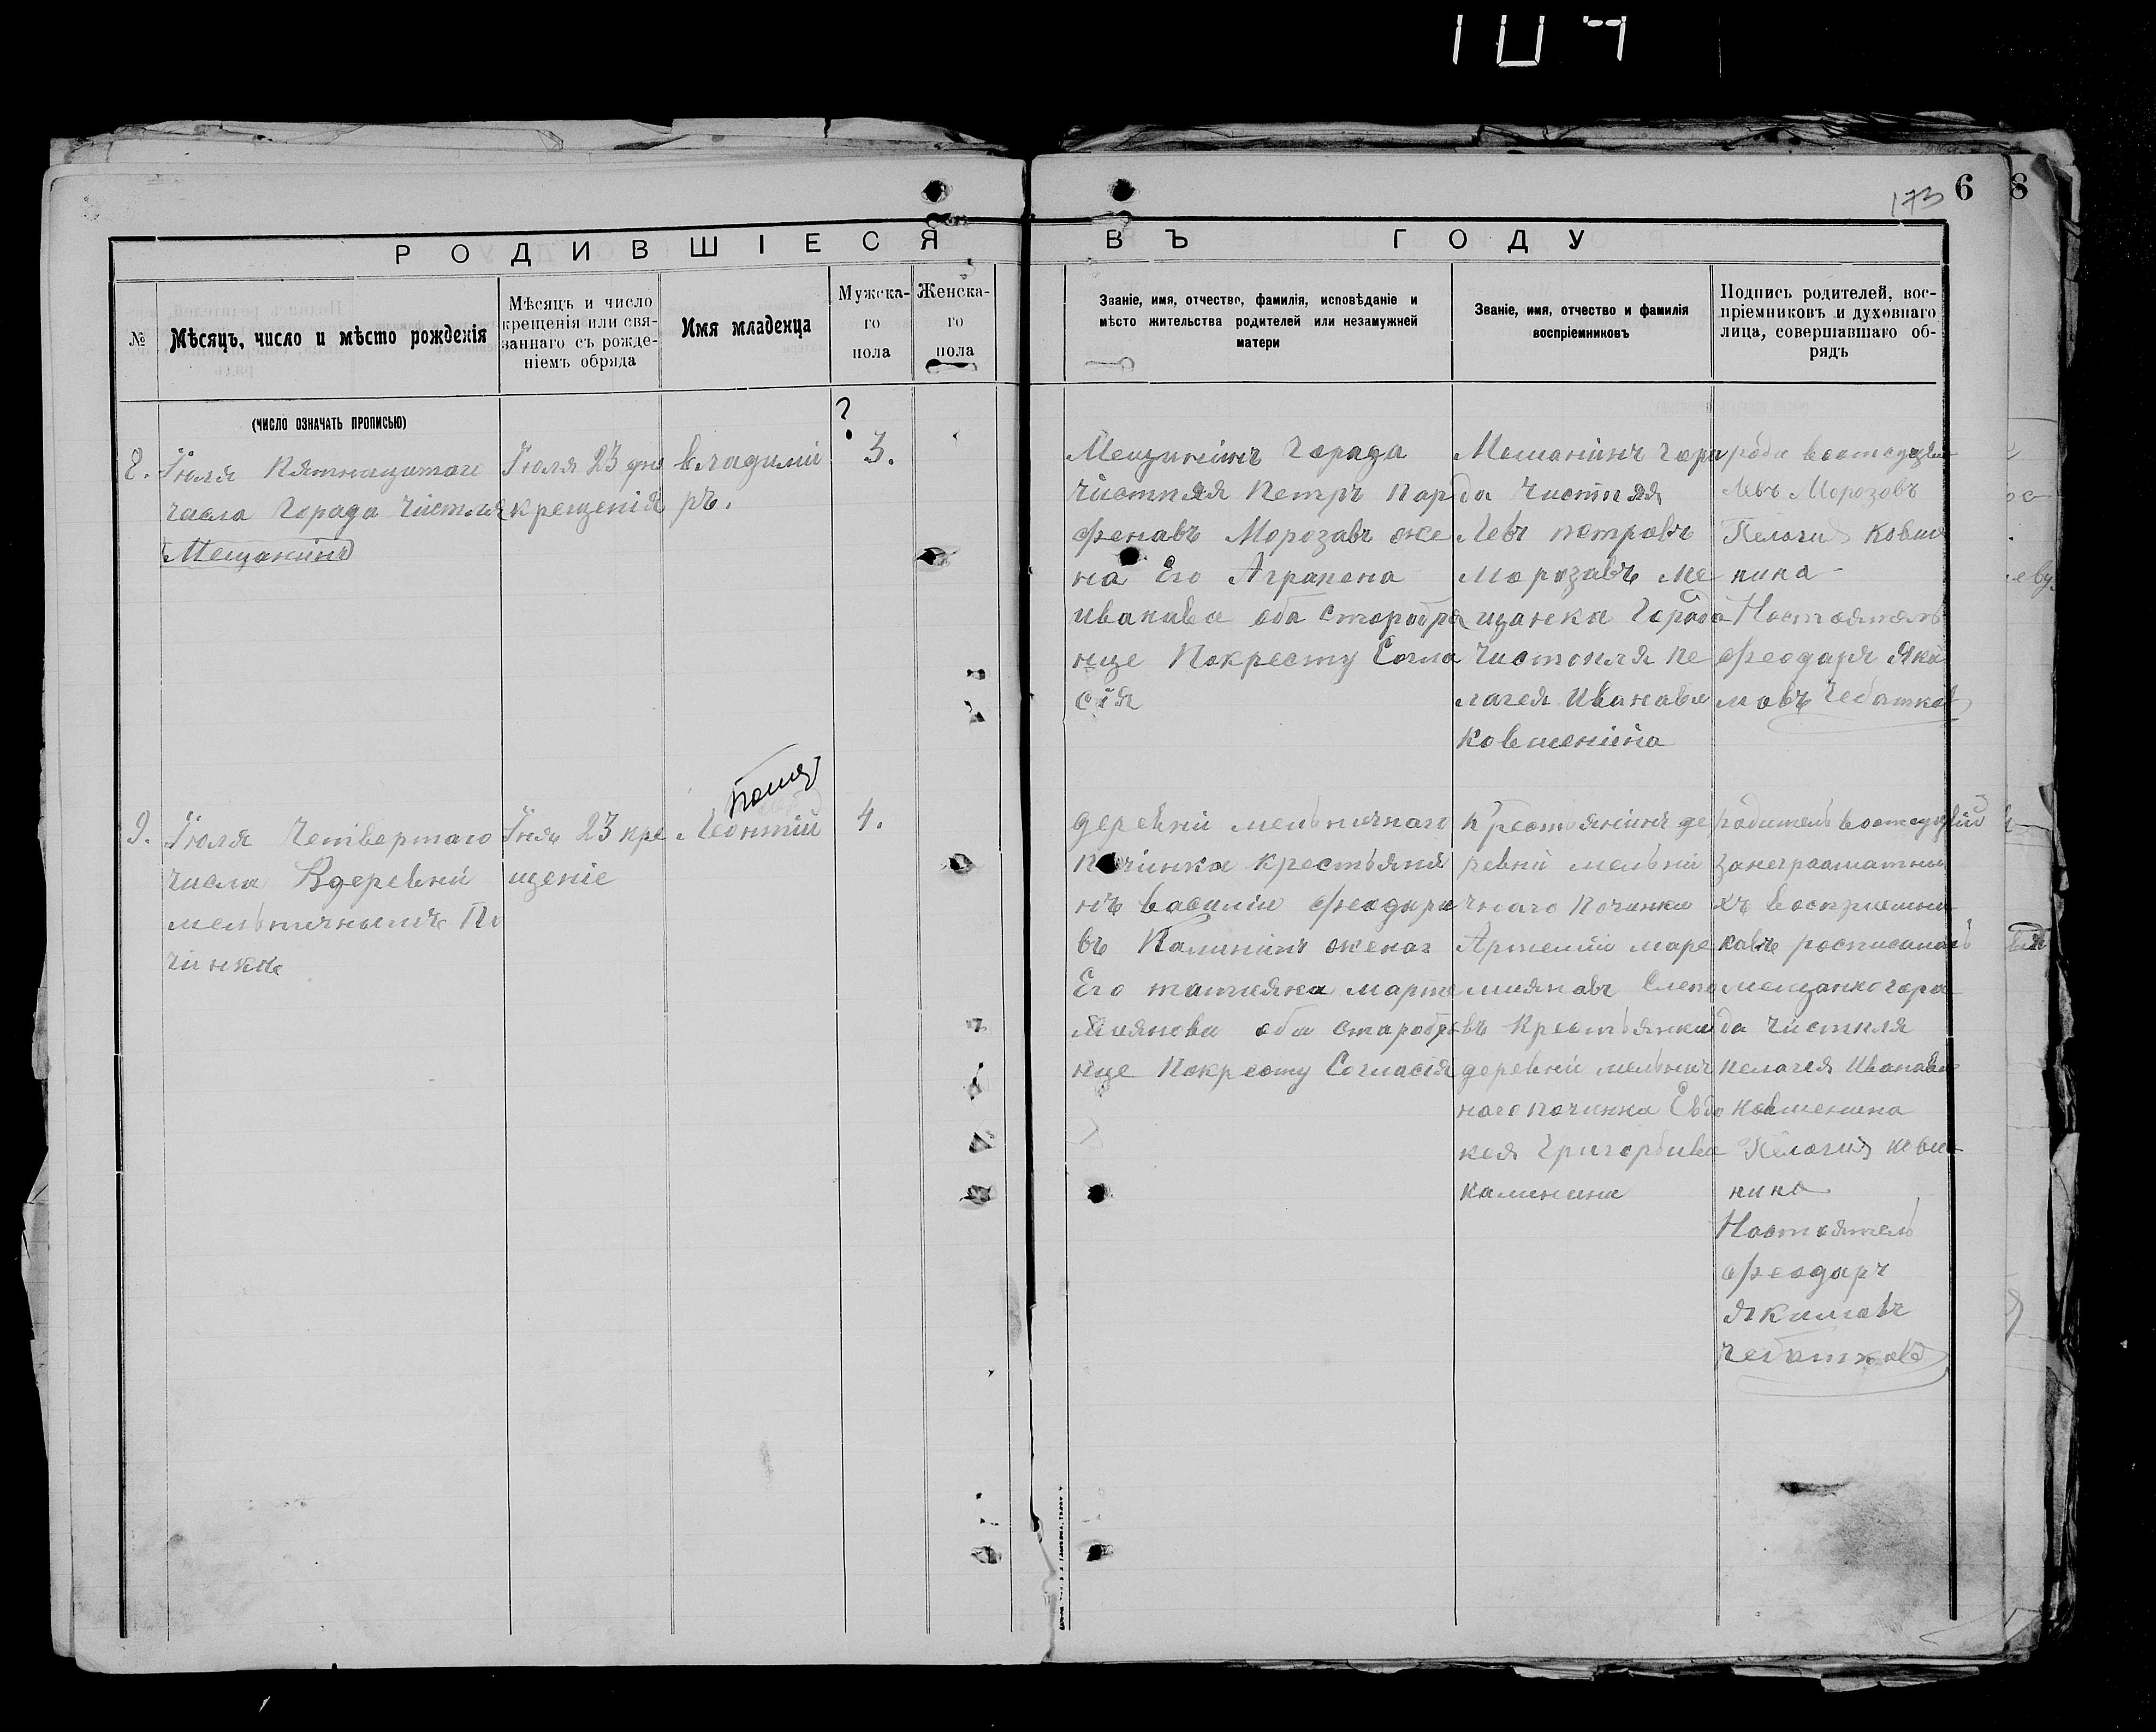 104
173
6
8
РОДИВШІЕСЯ ВЪ ГОДУ
№
Мѣсяцъ, число и мѣсто рожденія
Мѣсяцъ и число
крещенія или свя-
заннаго съ рожде-
ніемъ обряда
Имя младенца
Мужска-
го
пола
Женска-
го
пола
Званіе, имя, отчество, фамилія, исповѣданіе и
мѣсто жительства родителей или незамужней
матери
Званіе, имя, отчество и фамилія
воспріемниковъ
Подпись родителей, вос-
пріемниковъ и духовнаго
лица, совершавшаго об-
рядъ
(число означать прописью)
8.
Іюля Пятнацатаго
числа Горада
Мещанинъ
Іюля 23 дня
крещенія
владимі
ръ.
?
3.
Мещининъ Горада
Чистпля Петръ пар
фенавъ Морозавъ же
на Его Аграпена
ивановва оба старобря
нце Покресту Согла
сія
Мешанинъ Гора
да Чистпля
Левъ петровъ
Морозавъ ме
щанека Города
Чистопля пе
лагея Ивановв
Ковшенина
Левъ Морозовъ
Пелагия Ковше
нина
Настоятель
Феодаръ Яки
мовъ Чебатков
9.
Іюля Четвертаго
числа Вдеревни
мельничнымъ По
чинке
Іюля 23 кре
щеніе
Леонтій
4.
деревни мельничнаго
починка крестьяни
нъ василіи феодоро
въ Калининъ жена
Его татияна марте
миянова оба старобря
нце Покресту Согласія
Крестьянинъ де
ревни мельни
чнаго починка
Артемій маре
миянавъ Слепо
въ Крестьянка
деревни мельнич
наго починка Евдо
кея Григорьива
калинина
родитель
занеграматны
хъ восприемни
кавъ росписилась
мещанка гора
да Чистпля
пелагея Иванавв
Ковшенина
Пелагия Ковше
нина
Настоятель
феодаръ
Якимовъ
Чебатков